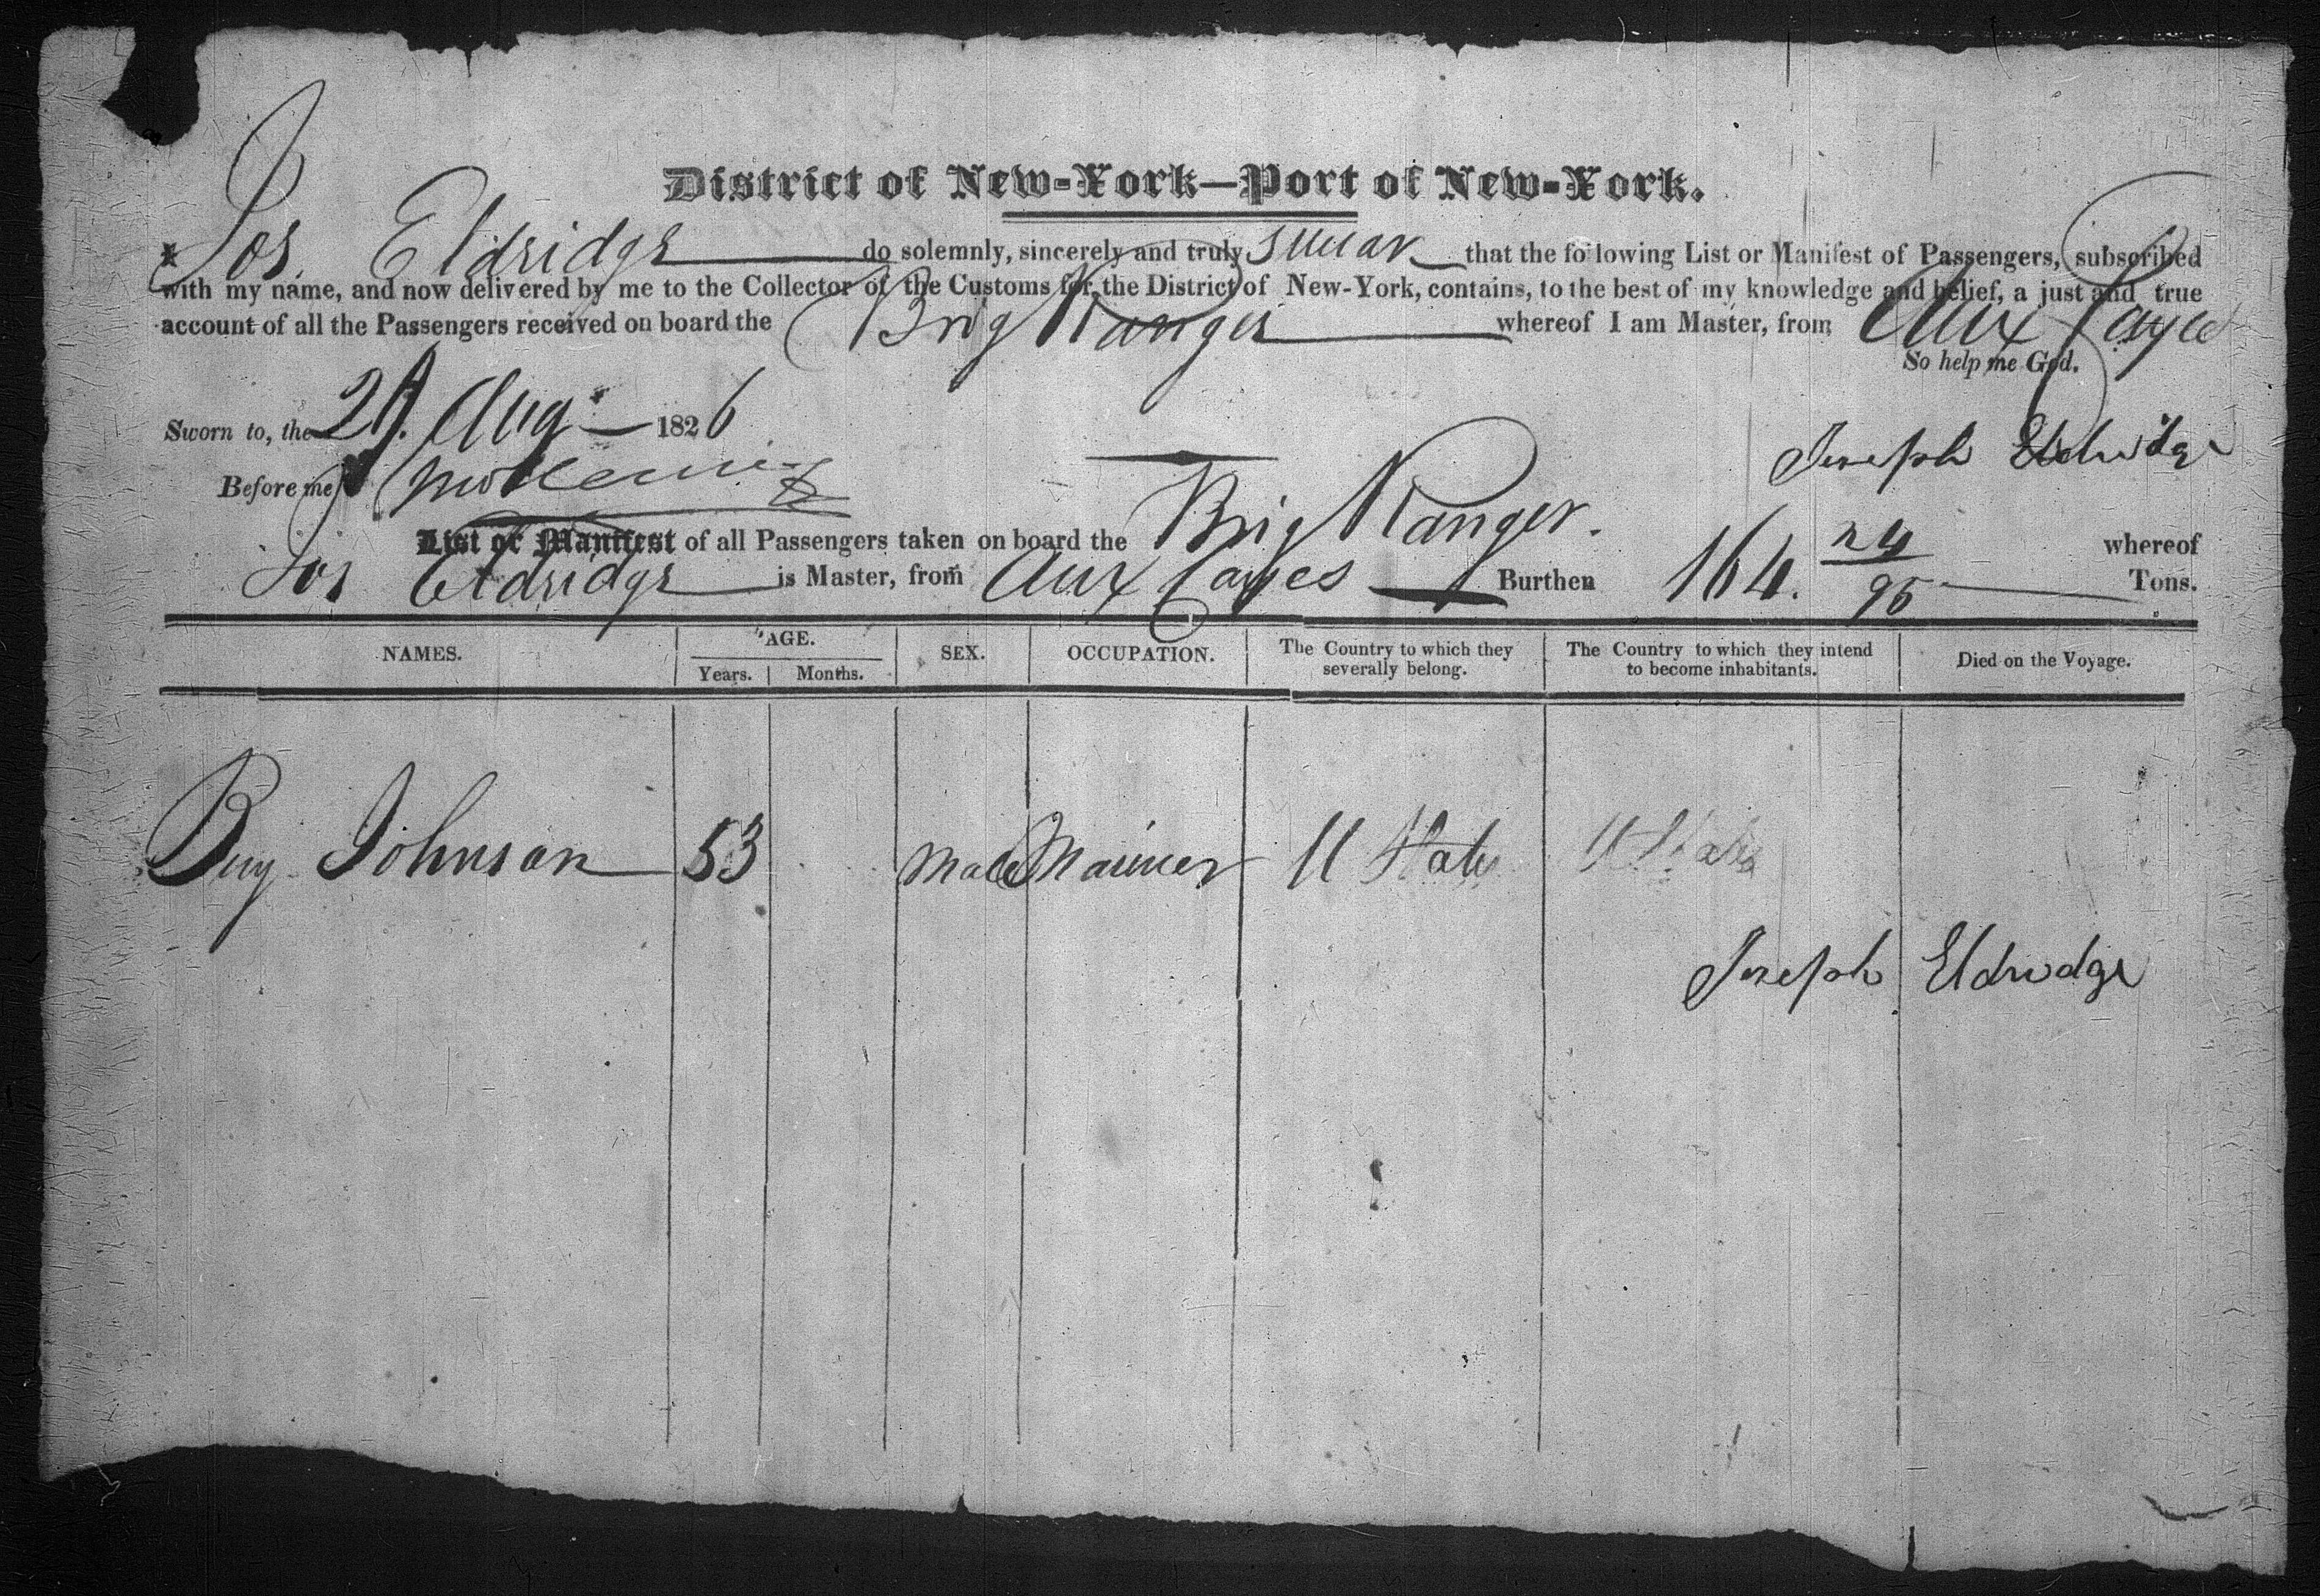 District of New-York—Port of New-York.
I, Jos Eldridge do solemnly, sincerely and truly swear that the following List or Manifest of Passengers, subscribed
with my name, and now delivered by me to the Collector of the Customs for the District of New-York, contains, to the best of my knowledge and belief, a just and true
account of all the Passengers received on board the Brig Ranger whereof I am Master, from Aux Cayes
So help me God.
Sworn to, the Aug 1826
Joseph Eldridge
Before me
List or Manifest of all Passengers taken on board the Brig Ranger. whereof
Jos Eldridge is Master, from Aux Cayes Burthen 164. 24/95 Tons.
NAMES. AGE. SEX. OCCUPATION. The Country to which they severally belong. The Country to which they intend to become inhabitants. Died on the Voyage.
Years. Months.
Benj Johnson 53 Male Mariner U States U States
Joseph Eldridge